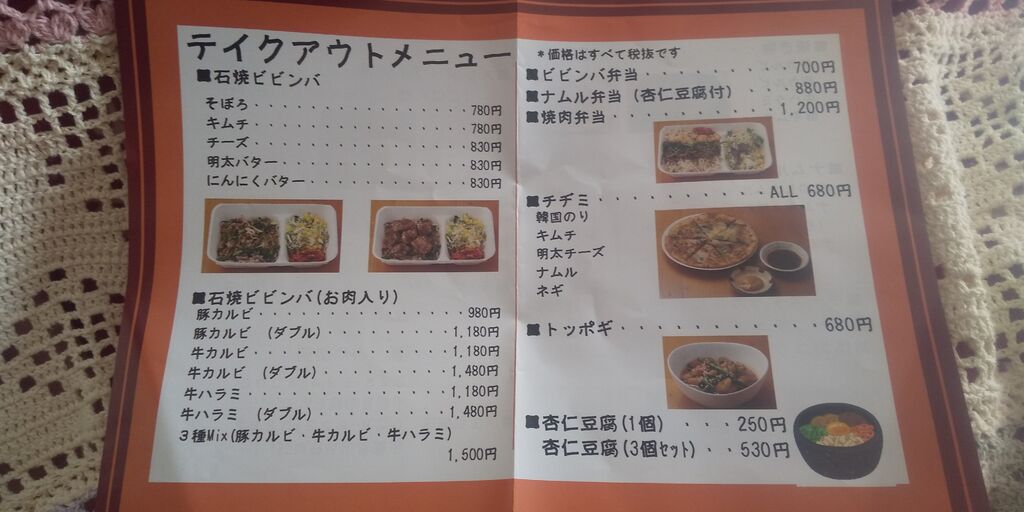 テイクアウトメニュー
■石焼ビビンバ
そぼろ・・・・・・・・・・・・・780円
キムチ・・・・・・・・・・・・・780円
チーズ・・・・・・・・・・・・・830円
明太バター・・・・・・・・・・・830円
にんにくバター・・・・・・・・・830円
■石焼ビビンバ(お肉入り)
豚カルビ・・・・・・・・・・・・980円
豚カルビ (ダブル)・・・・・・・・1,180円
牛カルビ・・・・・・・・・・・・1,180円
牛カルビ (ダブル)・・・・・・・・1,480円
牛ハラミ・・・・・・・・・・・・1,180円
牛ハラミ (ダブル)・・・・・・・・1,480円
3種Mix(豚カルビ・牛カルビ・牛ハラミ)
1,500円
*価格はすべて税抜です
■ビビンバ弁当・・・・・・・・700円
■ナムル弁当 (杏仁豆腐付)・・・・880円
■焼肉弁当・・・・・・・・・1,200円
■チヂミ・・・・・・・・・ALL 680円
韓国のり
キムチ
明太チーズ
ナムル
ネギ
■トッポギ・・・・・・・・・・・680円
■杏仁豆腐(1個)・・・250円
杏仁豆腐(3個セット)・・530円